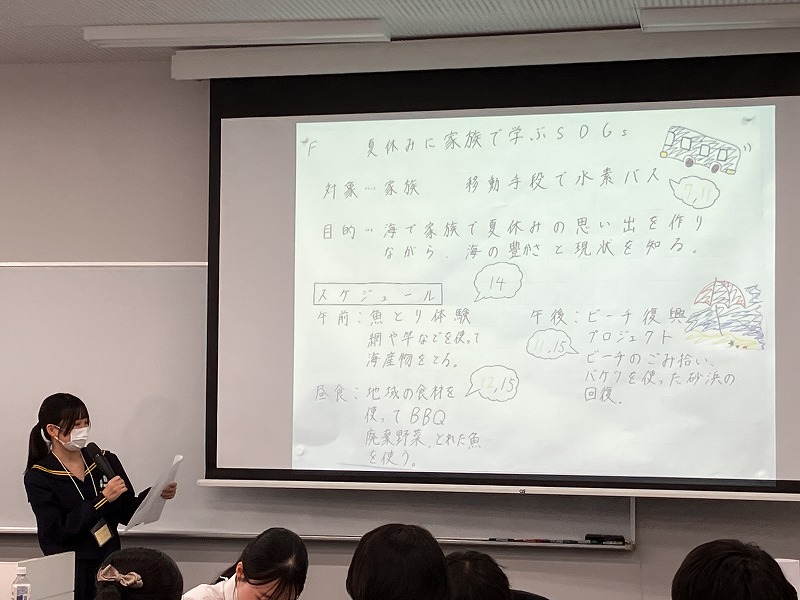 F 夏休みに家族で学ぶSDGs
対象…家族 移動手段で水素バス
7,11
目的…海で家族で夏休みの思い出を作り
ながら、海の豊かさと現状を知る。
14
スケジュール
午前:魚とり体験
網や竿などを使って
海産物をとる。
昼食:地域の食材を
12,15
使ってBBQ
廃棄野菜、とれた魚
を使う。
午後:ビーチ復興
プロジェクト
11,15
ビーチのごみ拾い、
バケツを使った砂浜の
回復.